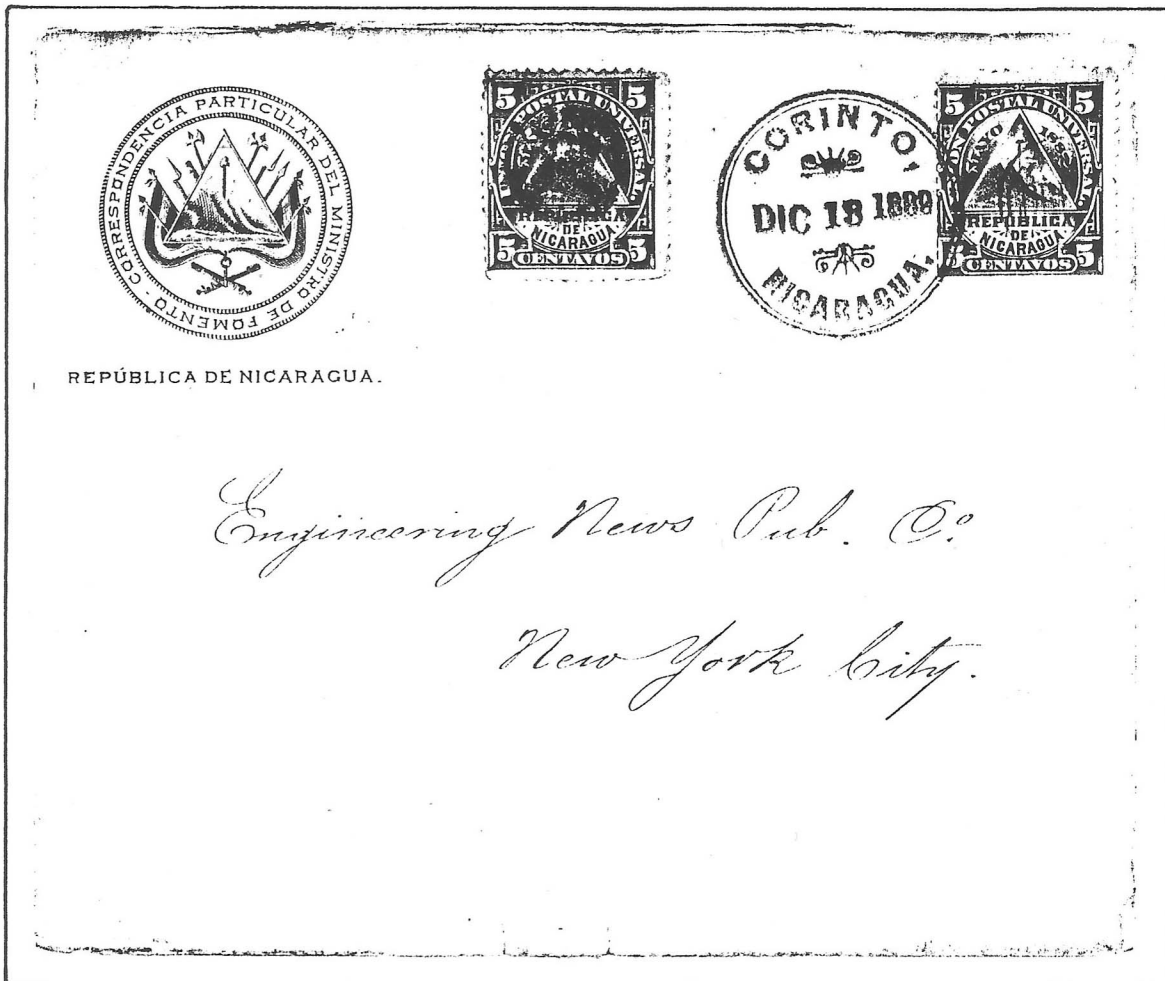 CORRESPONDENCIA PARTICULAR DEL MINISTRO DE FOMENTO
REPÚBLICA DE NICARAGUA.
5 5
UNION POSTAL UNIVERSAL.
REPUBLICA
DE
NICARAGUA
5 5
CENTAVOS
CORINTO,
DIC 18 1889
NICARAGUA.
5 5
UNION POSTAL UNIVERSAL.
MAYO 1882
REPÚBLICA
DE
NICARAGUA
5 5
CENTAVOS
Engineering News Pub. Co.
New York City.